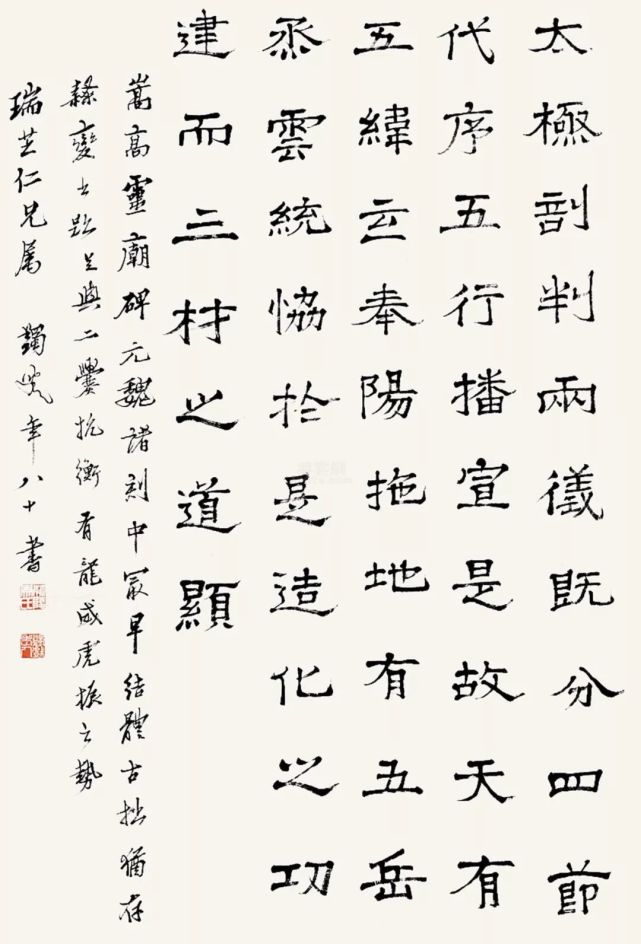 太極剖判兩儀既分四節
代序五行播宣是故天有
五緯主奉陽施地有五岳
烝雲統協於是造化之功
建而三材之道顯
嵩高靈廟碑元魏諸刻中冣早結體古拙猶存
隸變之跡足與二爨抗衡有龍威虎振之勢
瑞芝仁兄属 蠲叟年八十書